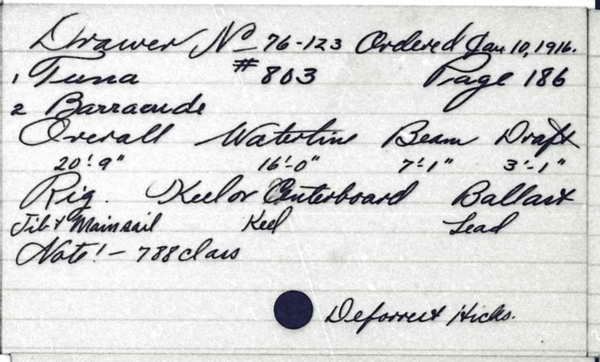 Drawer No 76-123 Ordered Jan 10, 1916.
1 Tuna #803 Page 186
2 Barracude
Overall Waterline Beam Draft
20'-9" 16'-0" 7'-1" 3'-1"
Rig. Keel or Centerboard Ballast
Jib & Mainsail Keel Lead
Note! - 788 class
Deforrest Hicks.